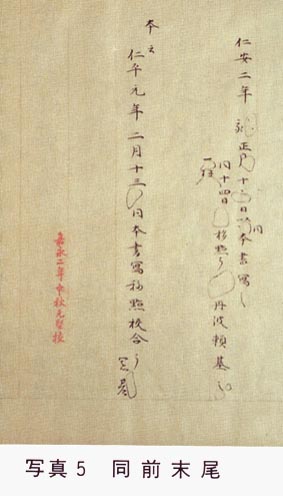 仁安二年 正月十三日以同本書写了
一校
同十四日移点了 丹波頼基
本云
仁平元年二月十三日以同本書写移点校合了
嘉永二年中秋元堅校
写真5 同前末尾